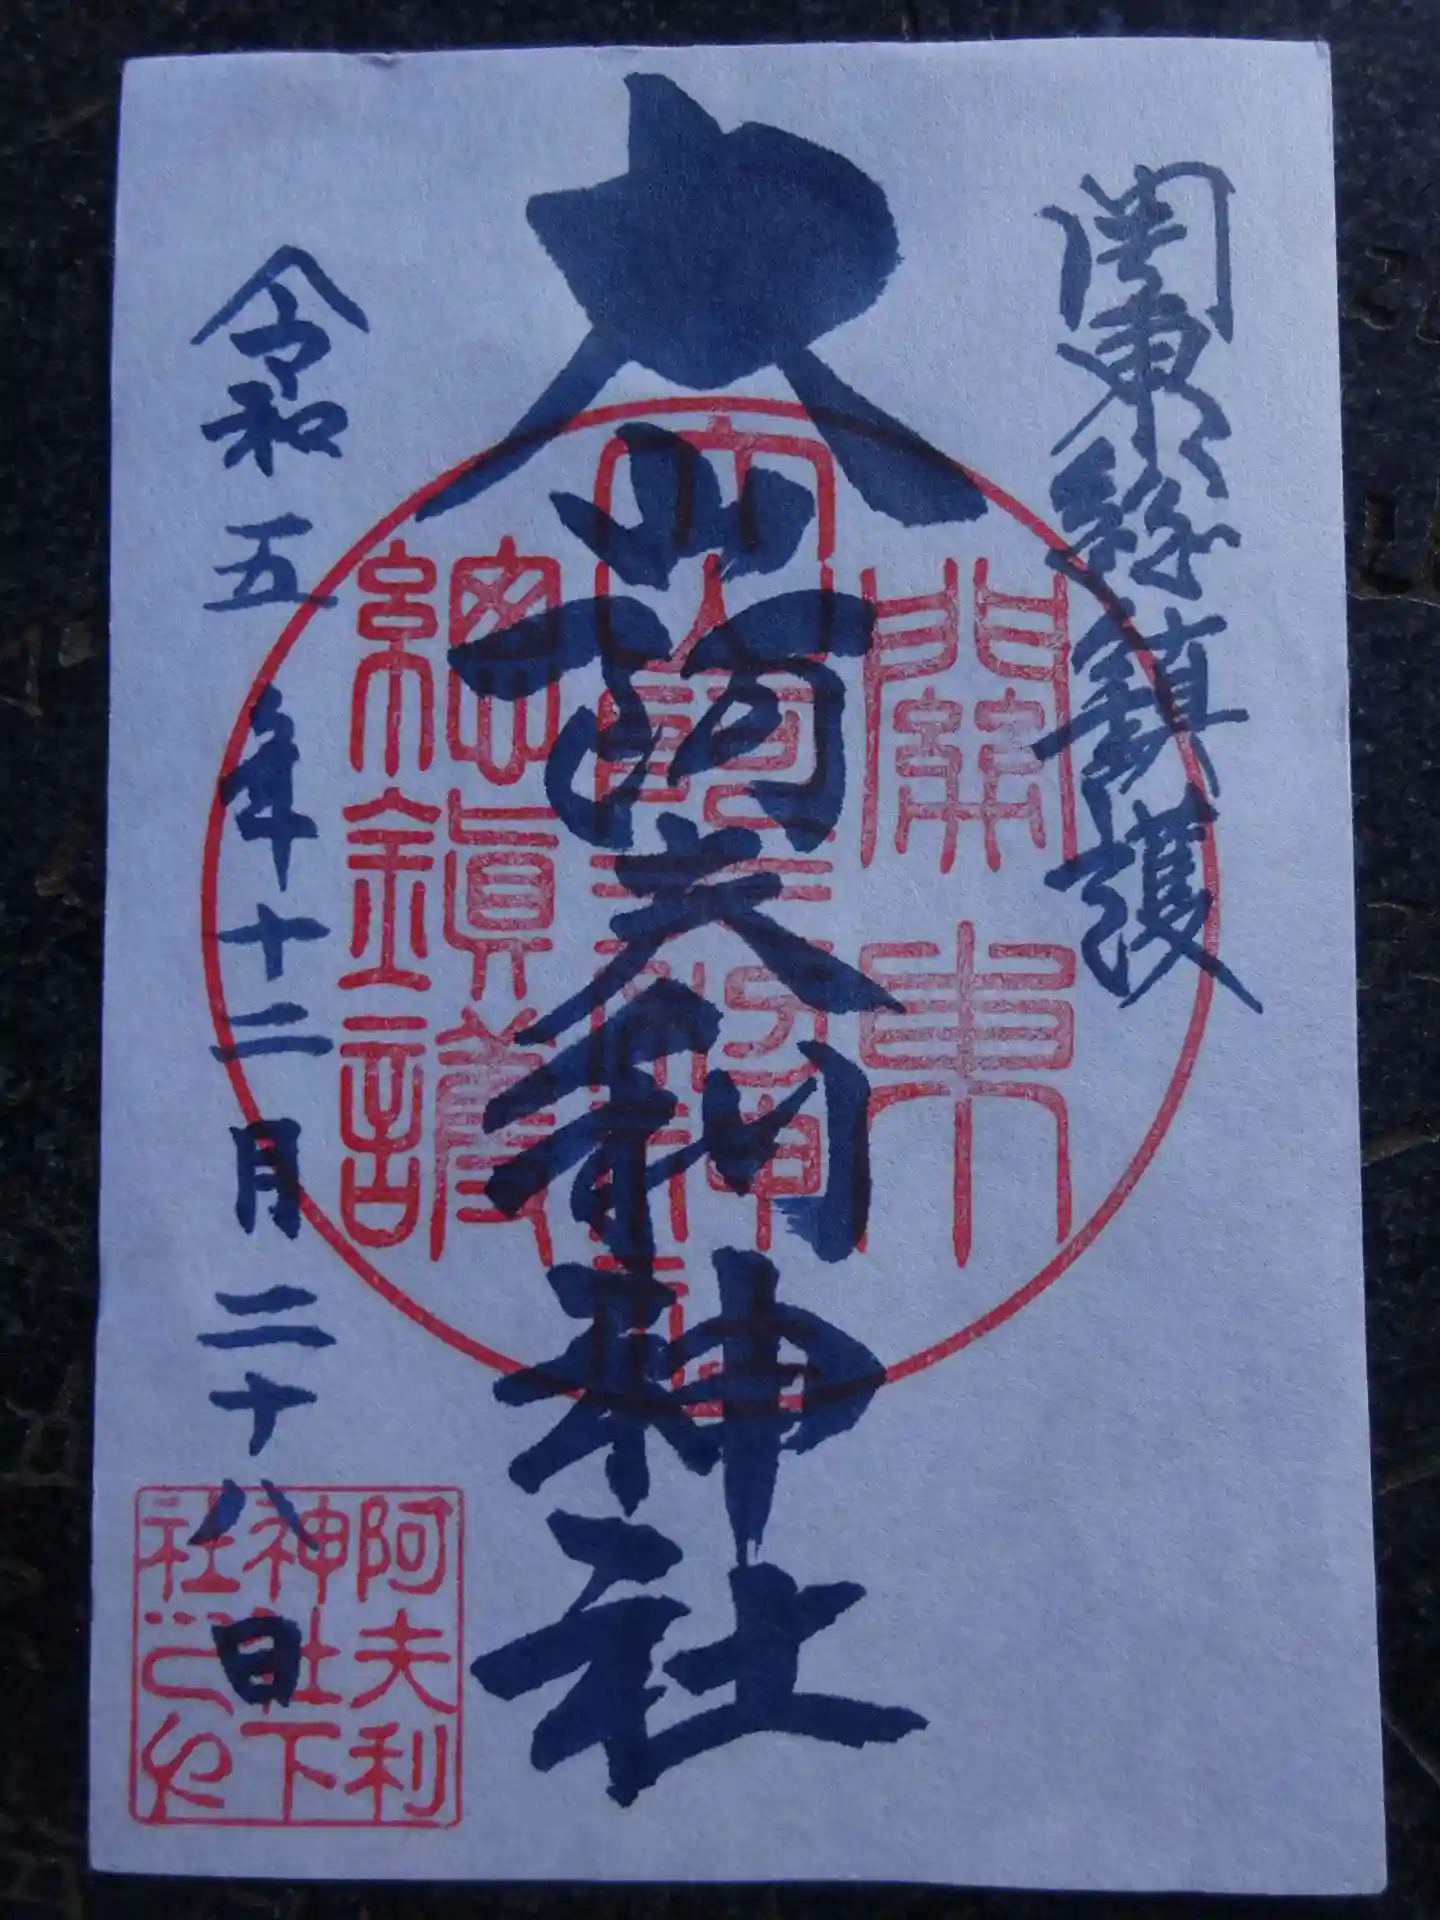 関東総鎮護
大山阿夫利神社
令和五年十二月二十八日
關東
大山阿夫利神社
總鎮護
阿夫利
神社下
社之印